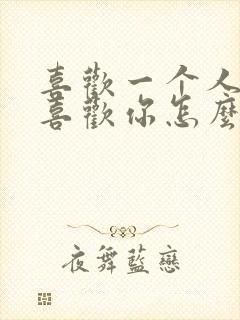 喜歡一个人
喜歡你怎麼
夜舞藍戀